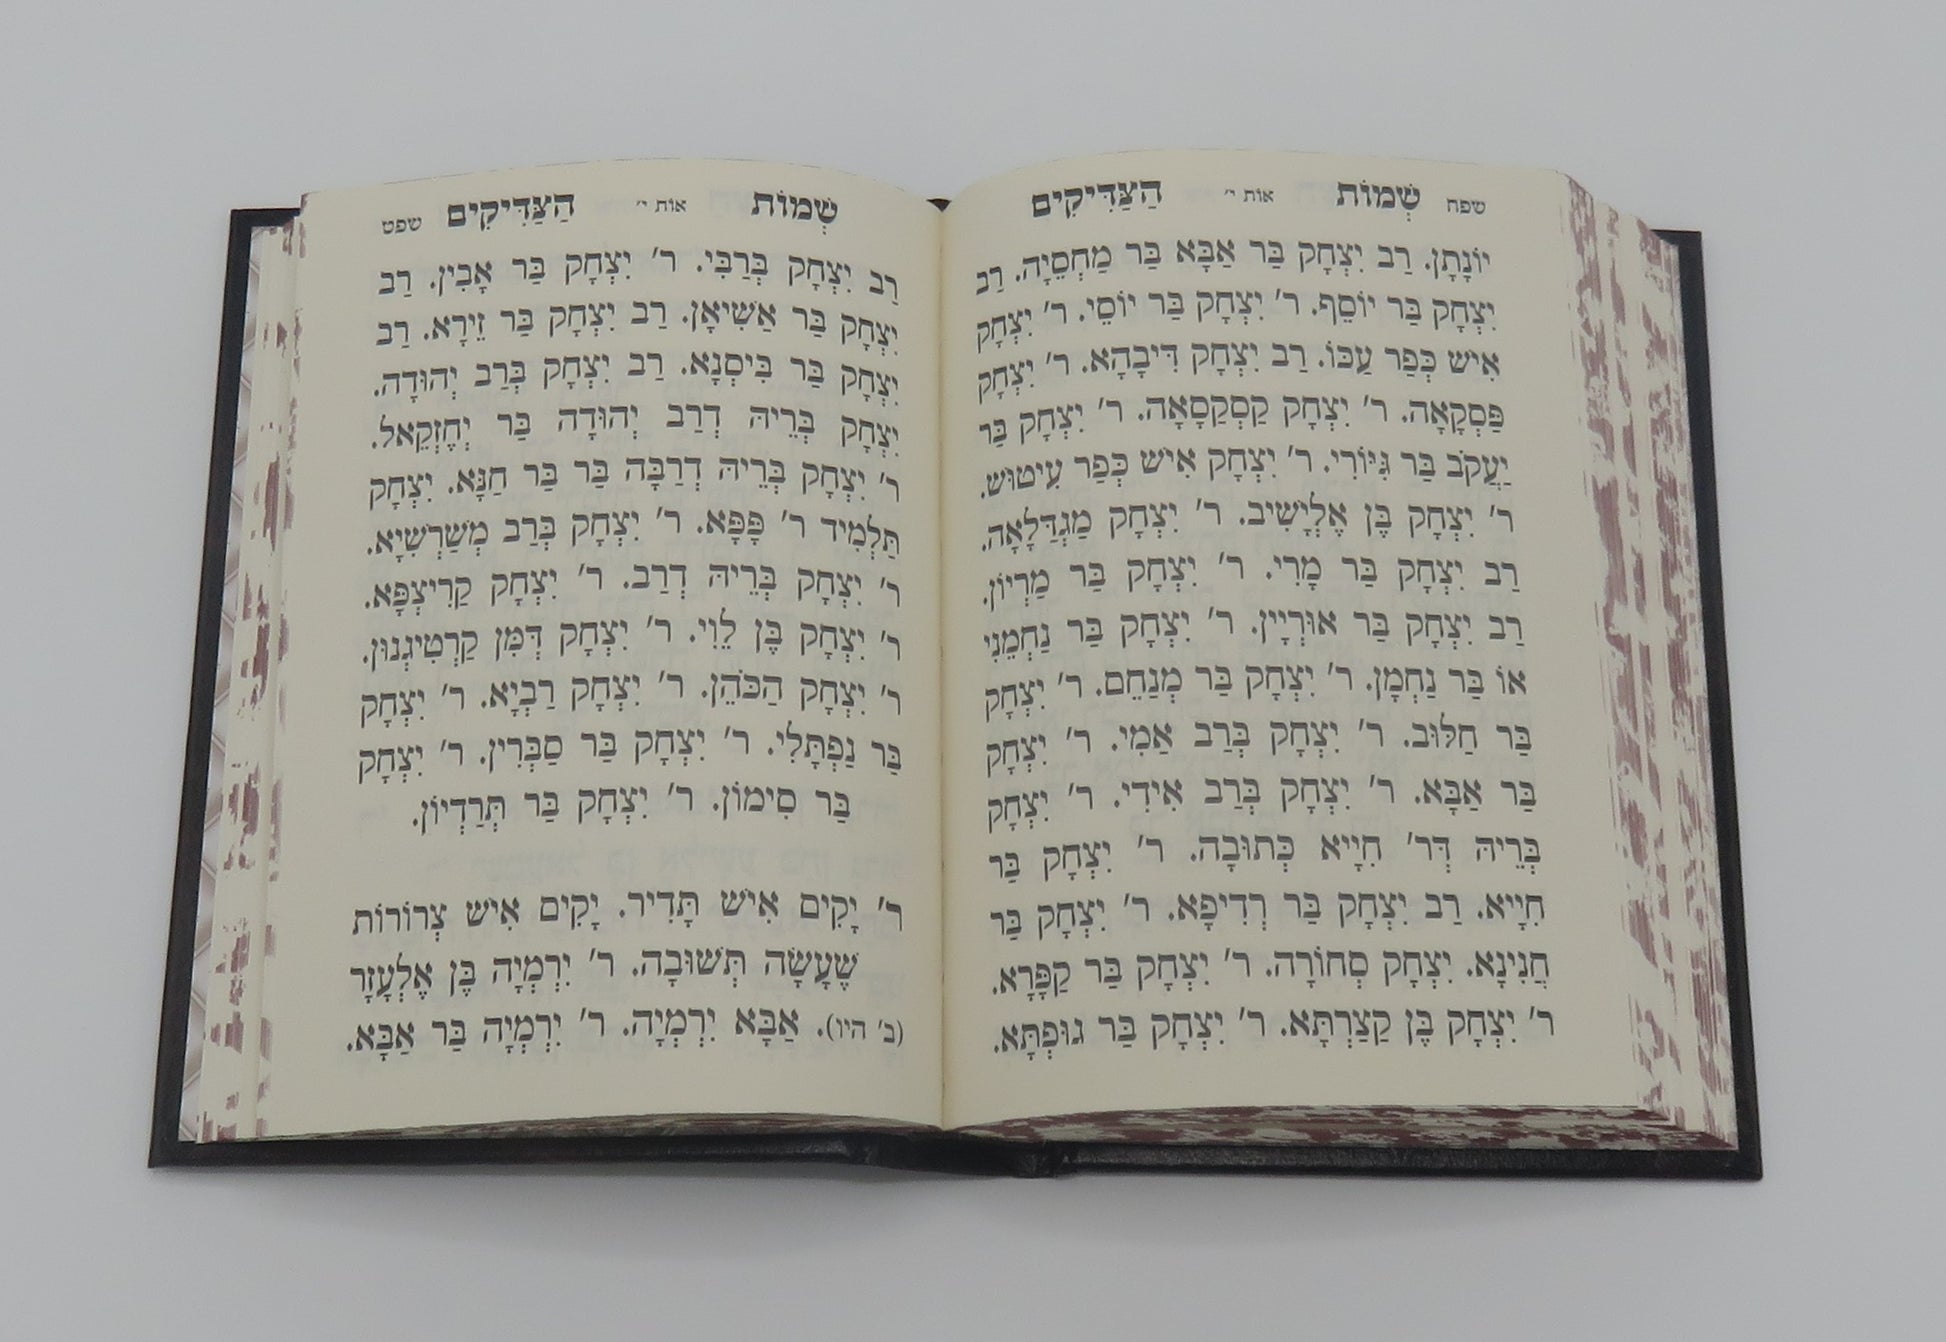 שפח שְׁמוֹת אות י׳ הַצַּדִּיקִים
יוֹנָתָן. רַב יִצְחָק בַּר אַבָּא בַּר מַחְסֵיָה. רַב
יִצְחָק בַּר יוֹסֵף. ר׳ יִצְחָק בַּר יוֹסֵי. ר׳ יִצְחָק
אִישׁ כְּפַר עַכּוֹ. רַב יִצְחָק דִּיבָהָא. ר׳ יִצְחָק
פַּסְקָאָה. ר׳ יִצְחָק קַסְקְסָאָה. ר׳ יִצְחָק בַּר
יַעֲקֹב בַּר גִּיּוֹרִי. ר׳ יִצְחָק אִישׁ כְּפַר עִיטוּשׁ.
ר׳ יִצְחָק בֶּן אֶלְיָשִׁיב. ר׳ יִצְחָק מַגְדְּלָאָה.
רַב יִצְחָק בַּר מָרִי. ר׳ יִצְחָק בַּר מַרְיוֹן.
רַב יִצְחָק בַּר אוּרְיָין. ר׳ יִצְחָק בַּר נַחְמֵנִי
אוֹ בַּר נַחְמָן. ר׳ יִצְחָק בַּר מְנַחֵם. ר׳ יִצְחָק
בַּר חַלּוּב. ר׳ יִצְחָק בְּרַב אַמִי. ר׳ יִצְחָק
בַּר אַבָּא. ר׳ יִצְחָק בְּרַב אִידִי. ר׳ יִצְחָק
בְּרֵיהּ דְּר׳ חִיָּיא כְּתוּבָה. ר׳ יִצְחָק בַּר
חִיָּיא. רַב יִצְחָק בַּר רְדִיפָא. ר׳ יִצְחָק בַּר
חֲנִינָא. יִצְחָק סְחוֹרָה. ר׳ יִצְחָק בַּר קַפָּרָא.
ר׳ יִצְחָק בֶּן קַצַּרְתָּא. ר׳ יִצְחָק בַּר גּוּפְתָּא.
שְׁמוֹת אות י׳ הַצַּדִּיקִים שפט
רַב יִצְחָק בְּרַבִּי. ר׳ יִצְחָק בַּר אָבִין. רַב
יִצְחָק בַּר אַשְׁיאָן. רַב יִצְחָק בַּר זֵירָא. רַב
יִצְחָק בַּר בִּיסְנָא. רַב יִצְחָק בְּרַב יְהוּדָה.
יִצְחָק בְּרֵיהּ דְרַב יְהוּדָה בַּר יְחֶזְקֵאל.
ר׳ יִצְחָק בְּרֵיהּ דְרַבָּה בַּר בַּר חַנָּא. יִצְחָק
תַּלְמִיד ר׳ פָּפָּא. ר׳ יִצְחָק בְּרַב מְשַׁרְשִׁיָא.
ר׳ יִצְחָק בְּרֵיהּ דְרַב. ר׳ יִצְחָק קַרִיצְפָּא.
ר׳ יִצְחָק בֶּן לֵוִי. ר׳ יִצְחָק דְּמִן קַרְטִיגְנוּן.
ר׳ יִצְחָק הַכֹּהֵן. ר׳ יִצְחָק רַבְיָא. ר׳ יִצְחָק
בַּר נַפְתָּלִי. ר׳ יִצְחָק בַּר סַבְּרִין. ר׳ יִצְחָק
בַּר סִימוֹן. ר׳ יִצְחָק בַּר תְּרַדְיוֹן.
ר׳ יָקִים אִישׁ תָּדִיר. יָקִים אִישׁ צְרוֹרוֹת
שֶׁעָשָׂה תְּשׁוּבָה. ר׳ יִרְמְיָה בֶּן אֶלְעָזָר
(ב׳ היו). אַבָּא יִרְמְיָה. ר׳ יִרְמְיָה בַּר אַבָּא.